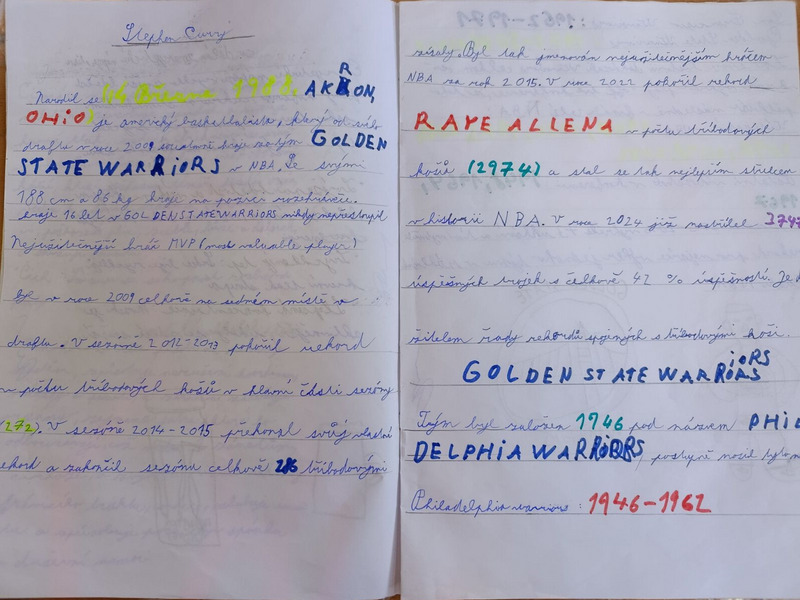 Stephen Curry
Narodil se (14 Března 1988, AKRON,
OHIO) je americký basketbalista, který od svého
draftu v roce 2009 soustavně hraje za tým GOLDEN
STATE WARRIORS v NBA. Se svými
188 cm a 86 kg hraje na pozici rozehrávače.
hraje 16 let v GOLDEN STATE WARRIORS nikdy nepřestoupil
Nejužitečnější hráč MVP (most valuable player)
byl v roce 2009 celkově na sedmém místě v
draftu. V sezóně 2012-2013 pokořil rekord
v počtu tříbodových košů v hlavní části sezóny
(272). V sezóně 2014-2015 překonal svůj vlastní
rekord a zakončil sezónu celkově 286 tříbodovými
zásahy. Byl tak jmenován nejužitečnějším hráčem
NBA za rok 2015. V roce 2021 pokořil rekord
RAYE ALLENA v počtu tříbodových
košů (2974) a stal se tak nejlepším střelcem
v historii NBA. V roce 2024 již nastřílel 3747
úspěšných trojek s celkově 42 % úspěšností. Je
žitelem řady rekordů spojených s tříbodovými koši.
GOLDEN STATE WARRIORS
IORS
Tým byl založen 1946 pod názvem PHIL
DELPHIA WARRIORS, postupně nosil
Philadelphia warriors: 1946-1962